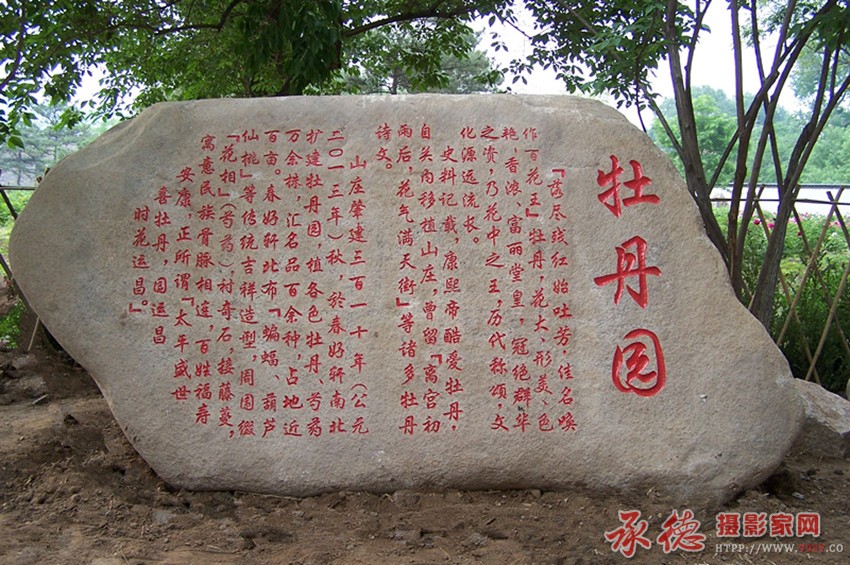 牡丹园
『落尽残红始吐芳，佳名唤
作百花王』牡丹，花大、形美、色
艳、香浓，富丽堂皇，冠绝群华
之资，乃花中之王，历代称颂，文
化源远流长。
史料记载，康熙帝酷爱牡丹，
自关内移植山庄，曾留『离宫初
雨后，花气满天衢』等诸多牡丹
诗文。
山庄肇建三百一十年（公元
二〇一三年）秋，於春好轩南北
扩建牡丹园，植各色牡丹、芍药
万余株，汇名品百余种，占地近
百亩。春好轩北布『蝙蝠、葫芦
仙桃』等传统吉祥造型，周围缀
『花相』（芍药），衬奇石，接藤蔓，
寓意民族骨脉相连，百姓福寿
安康，正所谓『太平盛世
喜牡丹，国运昌
时花运昌。』
承德 摄影家网
HTPP://WWW.
.CO